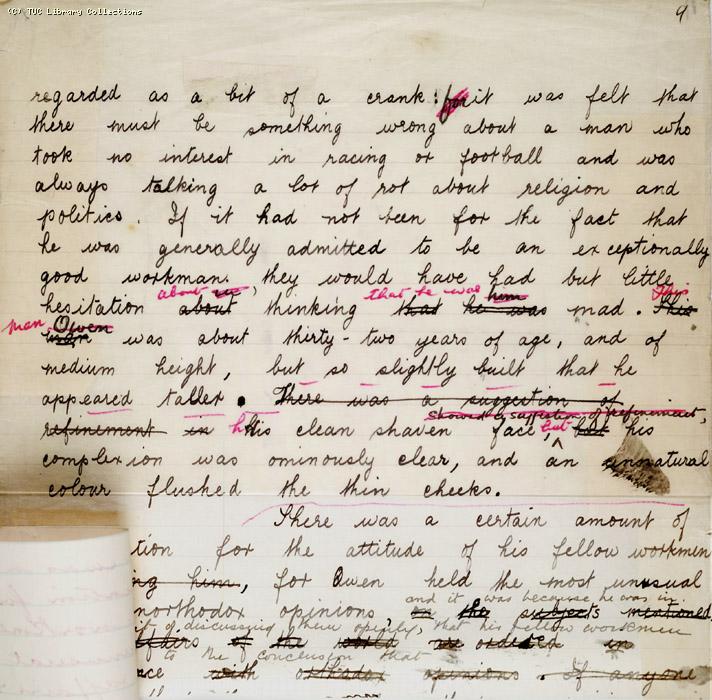 (C) TUC Library Collections
9
regarded as a bit of a crank: for it was felt that
there must be something wrong about a man who
took no interest in racing or football and was
always talking a lot of rot about religion and
politics. If it had not been for the fact that
he was generally admitted to be an exceptionally
good workman, they would have had but little
about that he was him This
hesitation about thinking that he was mad. This
man Owen
man was about thirty-two years of age, and of
medium height, but so slightly built that he
appeared taller. There was a suggestion of
showed a suggestion of refinement,
refinement in his clean shaven face, but but his
complexion was ominously clear, and an unnatural
colour flushed the thin cheeks.
There was a certain amount of
tion for the attitude of his fellow workmen
ing him, for Owen held the most unusual
and it was because he was in
northodox opinions on the subjects mentioned.
it of discussing them openly, that his fellow workmen
ffairs of the world are ordered in
to the conclusion that
ce with orthodox opinions. If anyone